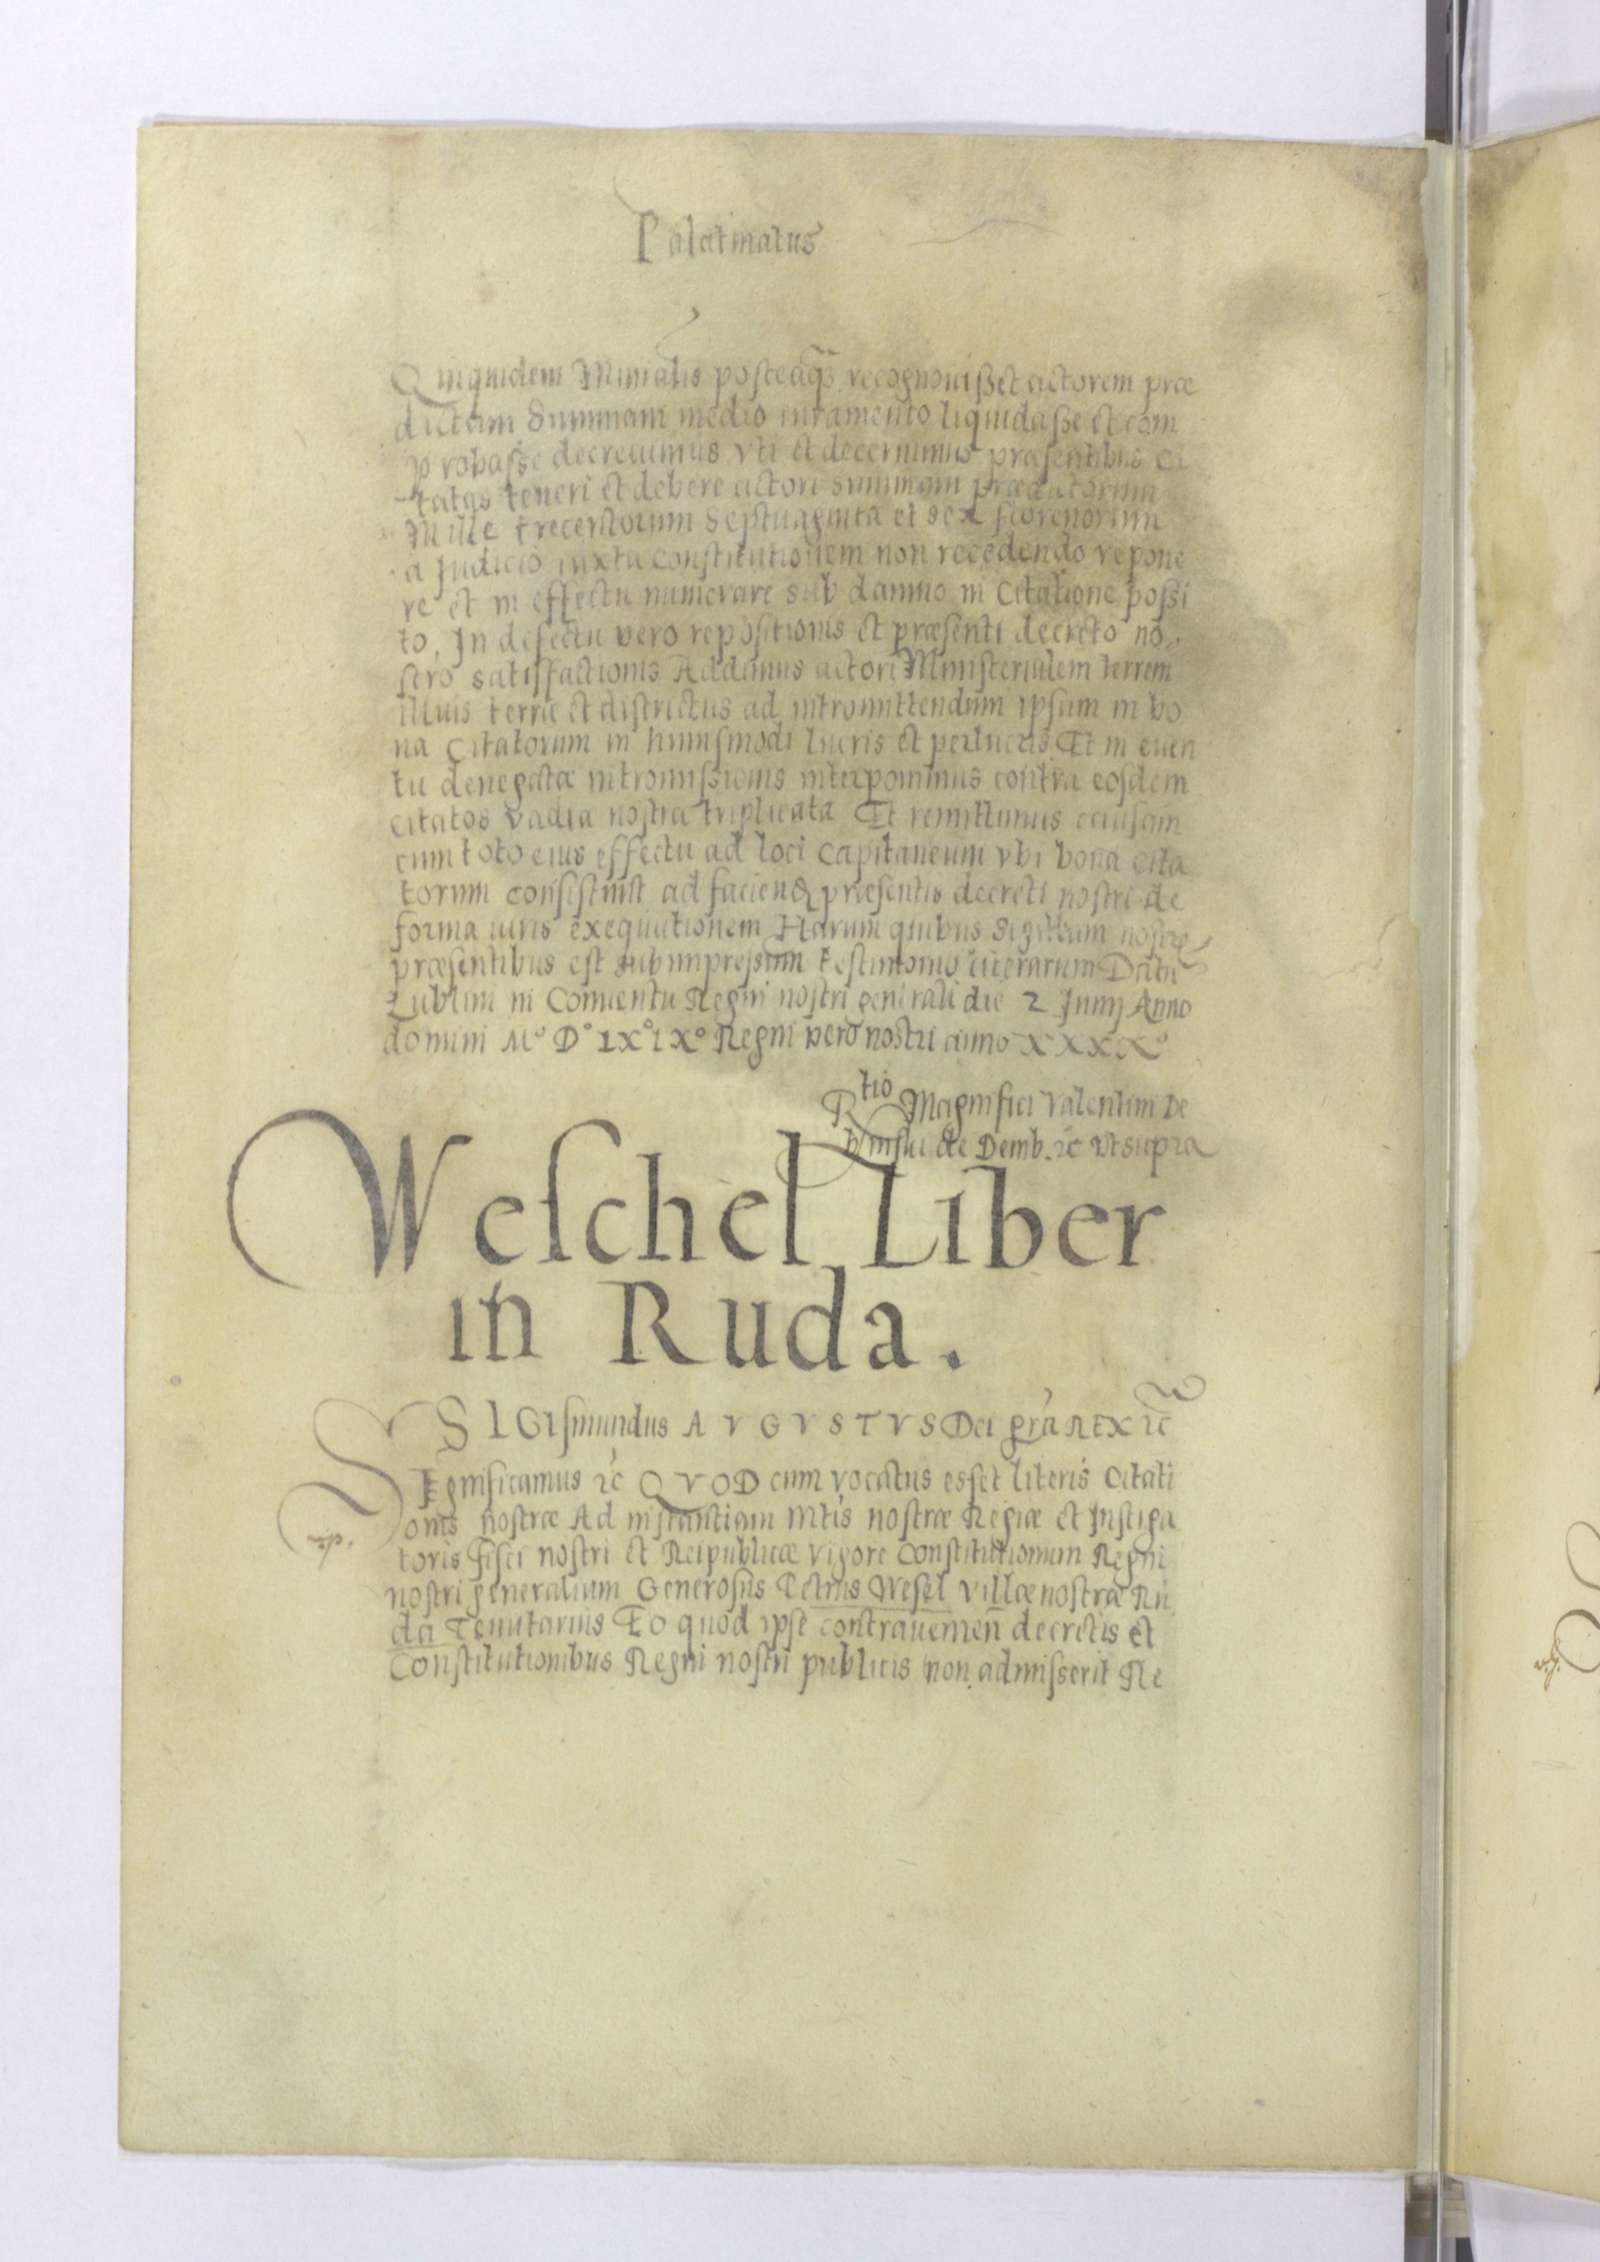 Palatinatus
Quiquidem Minialis posteaq̃ recognouisset actorem præ
dictam Summam medio iuramento liquidasse et com
probasse decreuimus vti et decernimus præsentibus Ci
tatos teneri et debere actori summam prædictorum
Mille trecentorum Septuaginta et sex florenorum
a Judicio iuxta constitutionem non recedendo repone
re et in effectu numerare sub damno in Citatione possi
to, In defectu vero repositionis et præsenti decreto no
stro satisfactionis Addimus actori Ministerialem terrem
illius terræ et districtus ad intromittendum ipsum in bo
na Citatorum in huiusmodi lucris et perlucris Et in euen
tu denegatæ intromissionis interponimus contra eosdem
citatos vadia nostra triplicata Et remittimus causam
cum toto eius effectu ad loci Capitaneum vbi bona Cita
torum consistunt ad faciend præsentis decreti nostri de
forma iuris exequutionem Harum quibus Sigillum nostrũ
præsentibus est subimpressum testimonio literarum Datũ
Lublini in Conuentu Regni nostri generali die 2 Junij Anno
domini Mº Dº LXºIXº Regni vero nostri anno XXXXº
Rtio Magnifici Valentini De
binski de Demb. ꝛc vt supra
Weschel Liber
in Ruda.
SIGIsmundus AVGVSTVS Dei gr̃a REX ꝛc
SIgnificamus ꝛc QVOD cum vocatus esset literis Citati
onis nostræ Ad instantiam Mtis nostræ Regiæ et Instiga
toris fisci nostri et Reipublicæ vigore Constitutionum Regni
nostri generalium Generosus Petrus Wesel villæ nostræ Ru
da Tenutarius Eo quod ipse contrauenien̄ decretis et
Constitutionibus Regni nostri publicis non admisserit Re